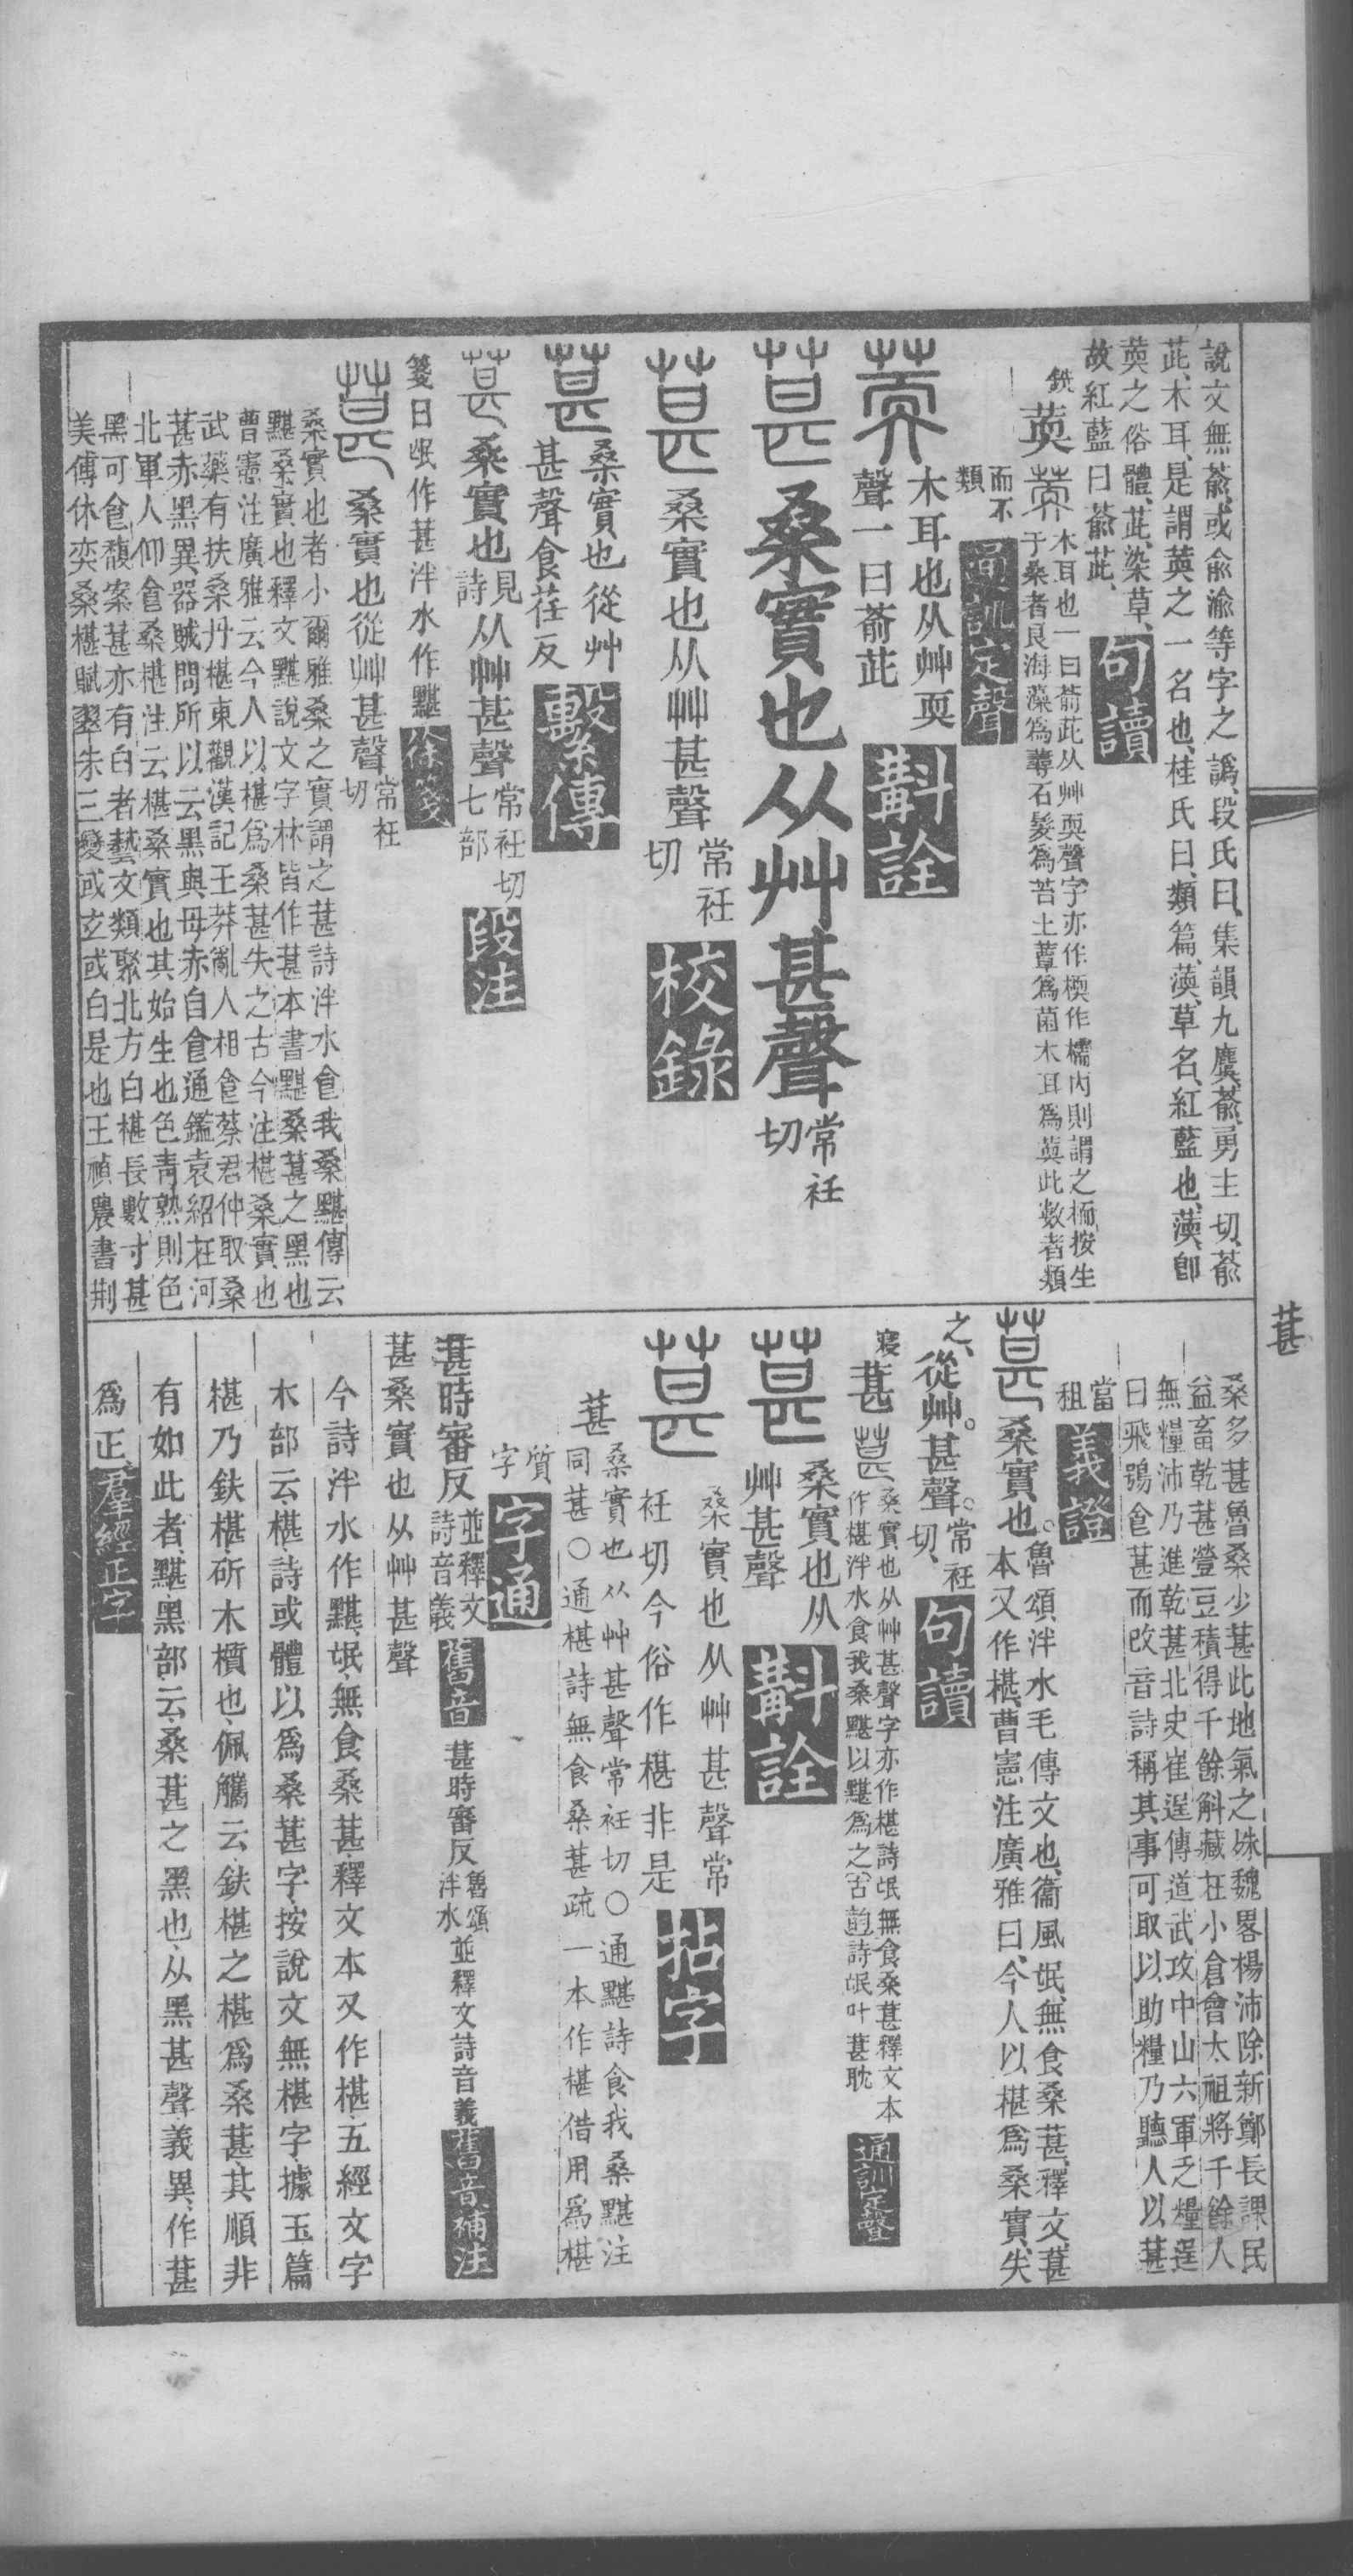 說文無蕍、或俞渝等字之譌、段氏曰、集韻九麌、蕍、勇主切、蕍
茈、木耳、是謂萸之一名也、桂氏曰、類篇、蓃、草名、紅藍也、蓃、卽
萸之俗體、茈、染草、
故紅藍曰蕍茈、
句讀
木耳也一曰萮茈从艸耎聲字亦作檽作檽內則謂之栭按生
于桑者艮海藻爲蕁石髮爲苔土蕈爲菌木耳爲萸此數者類
而不
類
通訓定聲
木耳也从艸耎
聲一曰萮茈
斠詮
桑實也从艸甚聲
常衽
切
桑實也从艸甚聲
常衽
切
校錄
桑實也從艸
甚聲食荏反
繫傳
桑實也
見
詩
从艸甚聲
常衽切
七部
段注
箋曰氓作葚泮水作黮
徐箋
桑實也從艸甚聲
常衽
切
桑實也者小爾雅桑之實謂之葚詩泮水食我桑黮傳云
黮桑實也釋文黮說文字林皆作葚本書黮桑葚之黑也
曹憲注廣雅云今人以椹爲桑葚失之古今注椹桑實也
武藥有扶桑丹椹東觀漢記王莽亂人相食蔡君仲取桑
葚赤黑異器賊問所以云黑與母赤自食通鑑袁紹在河
北軍人仰食桑椹注云椹桑實也其始生也色靑熟則色
黑可食馥案葚亦有白者藝文類聚北方白椹長數寸葚
美傅休奕桑椹賦翠朱三變或玄或白是也王禎農書荆
葚
桑多葚魯桑少葚此地氣之殊魏畧楊沛除新鄭長課民
益畜乾葚䝁豆積得千餘斛藏在小倉會太祖將千餘人
無糧沛乃進乾葚北史崔逞傳道武攻中山六軍乏糧逞
曰飛鴞食葚而改音詩稱其事可取以助糧乃聽人以葚
當
租
義證
桑實也。
魯頌泮水毛傳文也、衞風氓、無食桑葚、釋文、葚
本又作椹、曹憲注廣雅曰、今人以椹爲桑實、失
之、
從艸。甚聲。
常衽
切、
句讀
葚
桑實也从艸甚聲字亦作椹詩氓無食桑葚釋文本
作椹泮水食我桑黮以黮爲之、古韻詩氓叶葚耽
通訓定聲
桑實也从
艸甚聲
斠詮
桑實也从艸甚聲常
衽切今俗作椹非是
拈字
葚
桑實也从艸甚聲常衽切○通黮詩食我桑黮注
同葚○通椹詩無食桑葚疏一本作椹借用爲椹
質
字
字通
葚時審反
並釋文
詩音義
舊音
葚時審反
魯頌
泮水
並釋文詩音義
舊音補注
葚桑實也从艸甚聲
今詩泮水作黮、氓、無食桑葚、釋文本又作椹、五經文字
木部云、椹、詩或體以爲桑葚字、按說文無椹字、據玉篇
椹乃鈇椹、斫木櫍也、佩觿云、鈇椹之椹爲桑葚、其順非
有如此者、黮黑部云、桑葚之黑也、从黑甚聲義異、作葚
爲正、
羣經正字